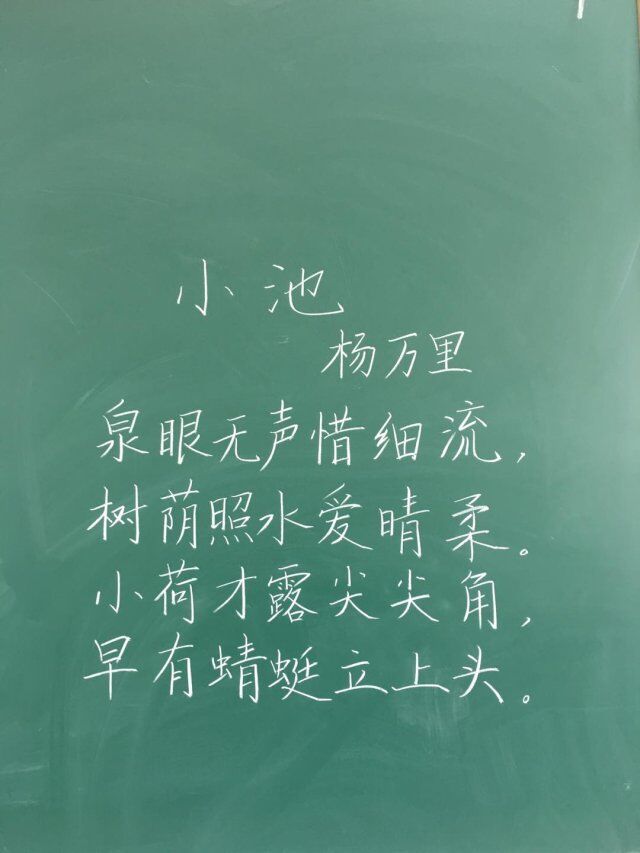 小池
杨万里
泉眼无声惜细流，
树荫照水爱晴柔。
小荷才露尖尖角，
早有蜻蜓立上头。